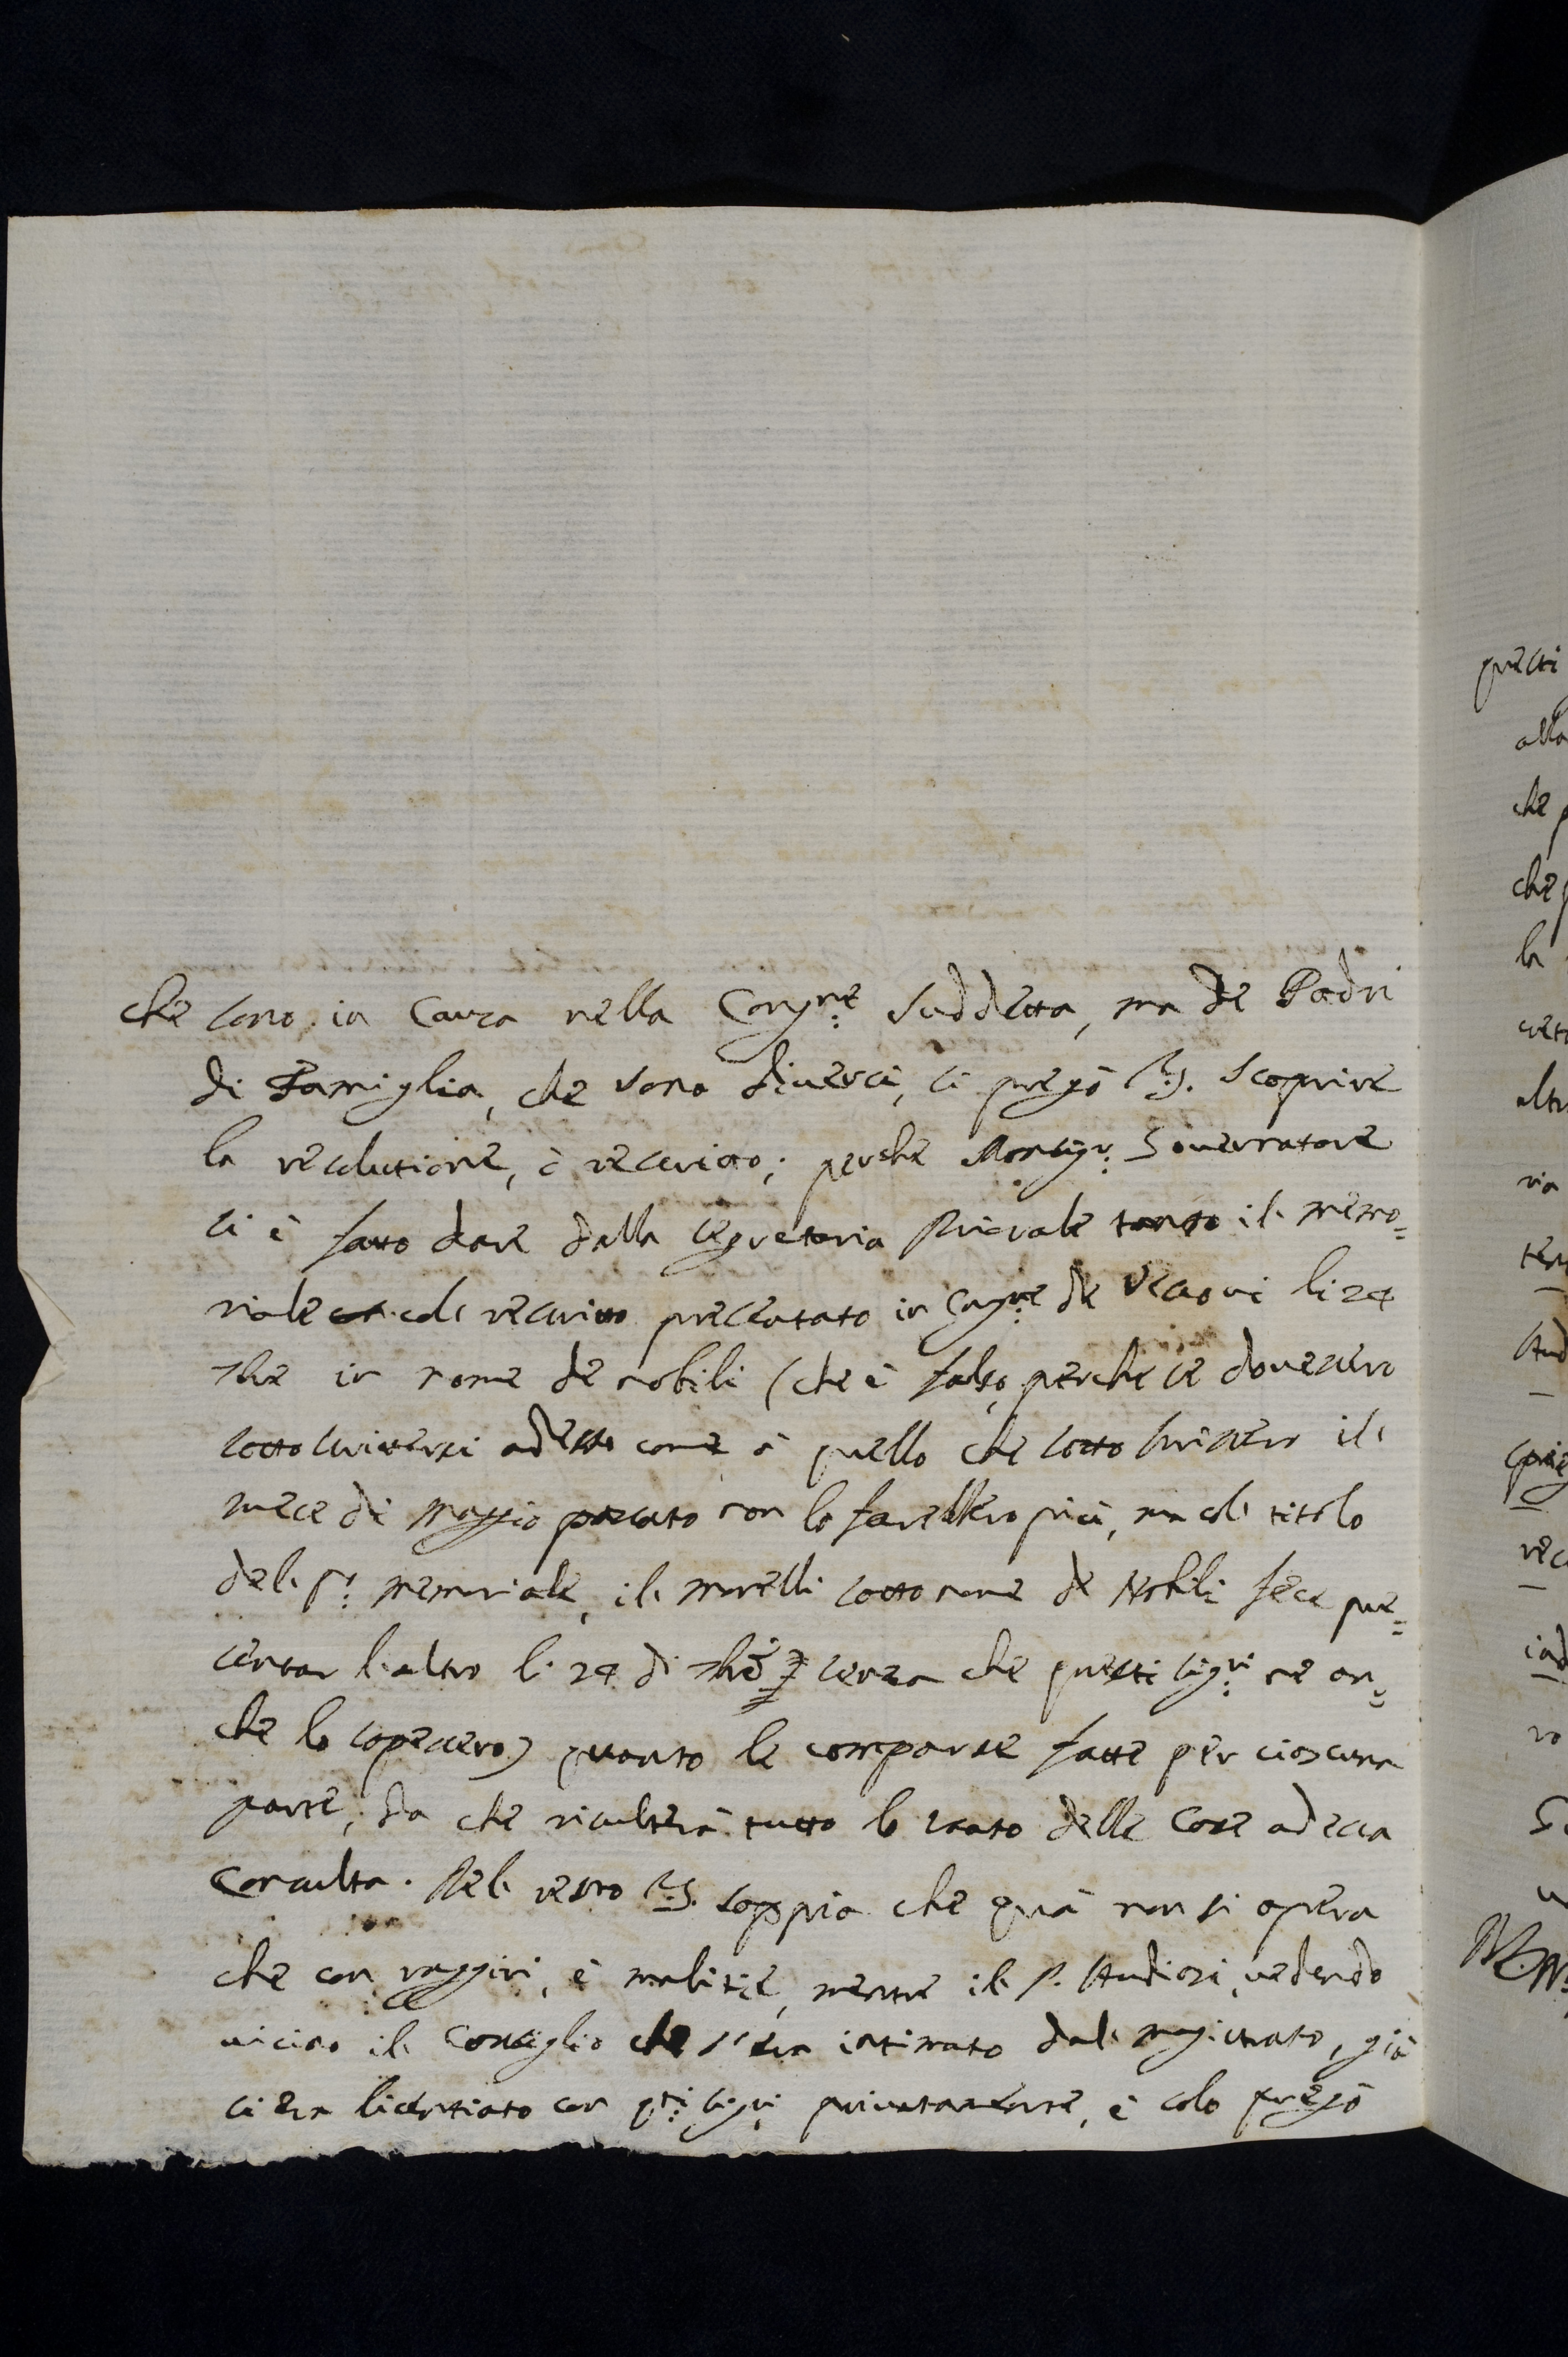 che sono in Causa nella Congne suddetta, ma de Padri
di Famiglia, che sono diuersi, si pregò V.S. scoprire
la resolutione, ò rescritto; perche Monsigr Gouernatore
si è fatto dare dalla segretaria Priorale tanto il memo=
riale col rescritto presentato in Congne de Vescoui li 24
7bre in nome de nobili (che è falso, perche se douessero
sottoscriuersi adesso come à quello che sottoscrissero il
mese di Maggio passato non lo farebbero più, ma col titolo
del pº memoriale, il Morelli sotto nome de Nobili fece pre=
sentar l'altro li 24 di 7bre senza che questi sigri ne an=
che lo sapessero) quanto le comparse fatte per ciascuna
parte, da che risulterà tutto lo stato delle Cose ad essa
Consulta. Nel resto V.S. sappia che quà non si opera
che con raggiri, è malitie, mentre il P. Audiosi, uedendo
uicino il Conseglio che s'era intimato dal magistrato, già
si era licentiato con qti sigri priuatamente, è solo pregò
questi
alla
che p
che p
la
altr
ria
ro